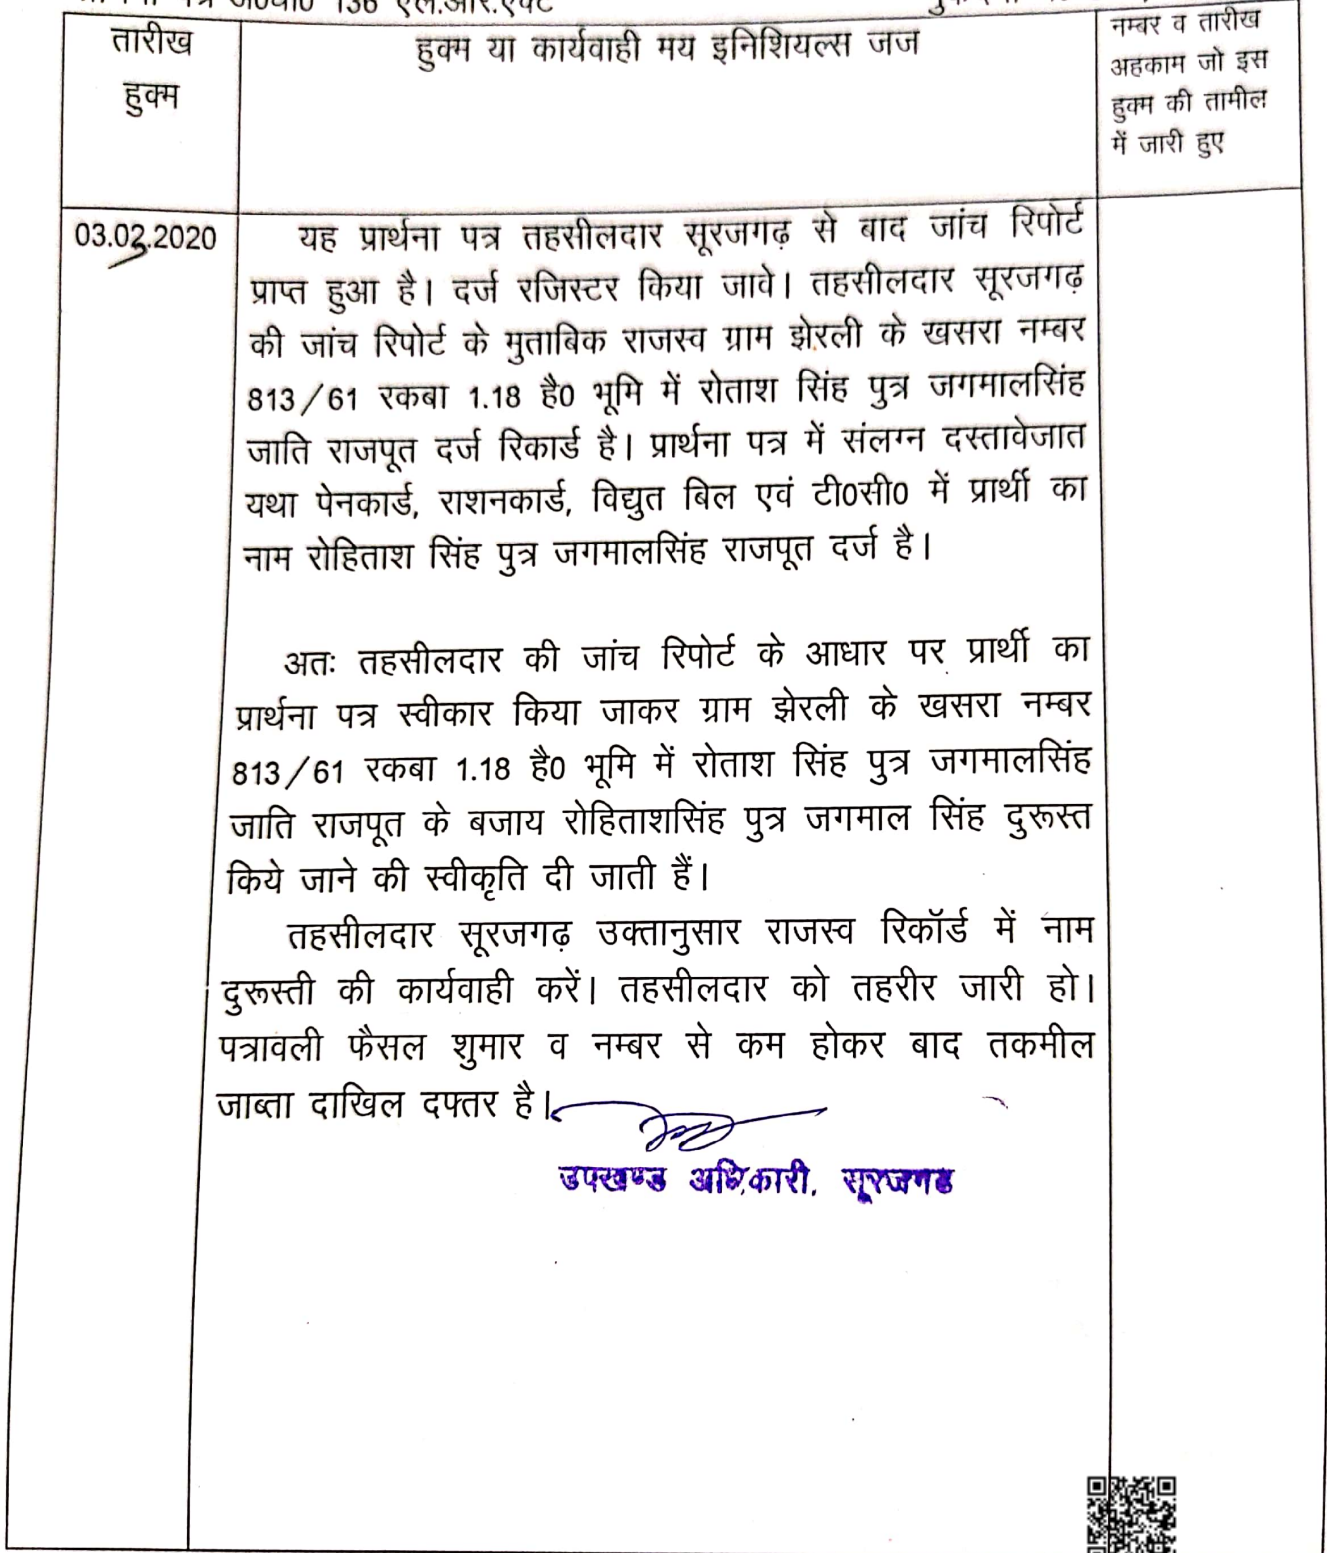 136 एल.आर.एक्ट
तारीख
हुक्म
हुक्म या कार्यवाही मय इनिशियल्स जज
नम्बर व तारीख
अहकाम जो इस
हुक्म की तामील
में जारी हुए
यह प्रार्थना पत्र तहसीलदार सूरजगढ़ से बाद जांच रिपोर्ट
प्राप्त हुआ है। दर्ज रजिस्टर किया जावे। तहसीलदार सूरजगढ़
की जांच रिपोर्ट के मुताबिक राजस्व ग्राम झेरली के खसरा नम्बर
813/61 रकबा 1.18 है0 भूमि में रोताश सिंह पुत्र जगमालसिंह
जाति राजपूत दर्ज रिकार्ड है। प्रार्थना पत्र में संलग्न दस्तावेजात
यथा पेनकार्ड, राशनकार्ड, विद्युत बिल एवं टी0सी0 में प्रार्थी का
नाम रोहिताश सिंह पुत्र जगमालसिंह राजपूत दर्ज है।
अतः तहसीलदार की जांच रिपोर्ट के आधार पर प्रार्थी का
प्रार्थना पत्र स्वीकार किया जाकर ग्राम झेरली के खसरा नम्बर
813/61 रकबा 1.18 है0 भूमि में रोताश सिंह पुत्र जगमालसिंह
जाति राजपूत के बजाय रोहिताशसिंह पुत्र जगमाल सिंह दुरूस्त
किये जाने की स्वीकृति दी जाती हैं।
तहसीलदार सूरजगढ़ उक्तानुसार राजस्व रिकॉर्ड में नाम
दुरूस्ती की कार्यवाही करें। तहसीलदार को तहरीर जारी हो।
पत्रावली फैसल शुमार व नम्बर से कम होकर बाद तकमील
जाब्ता दाखिल दफ्तर है।
उपखण्ड अधिकारी, सूरजगढ